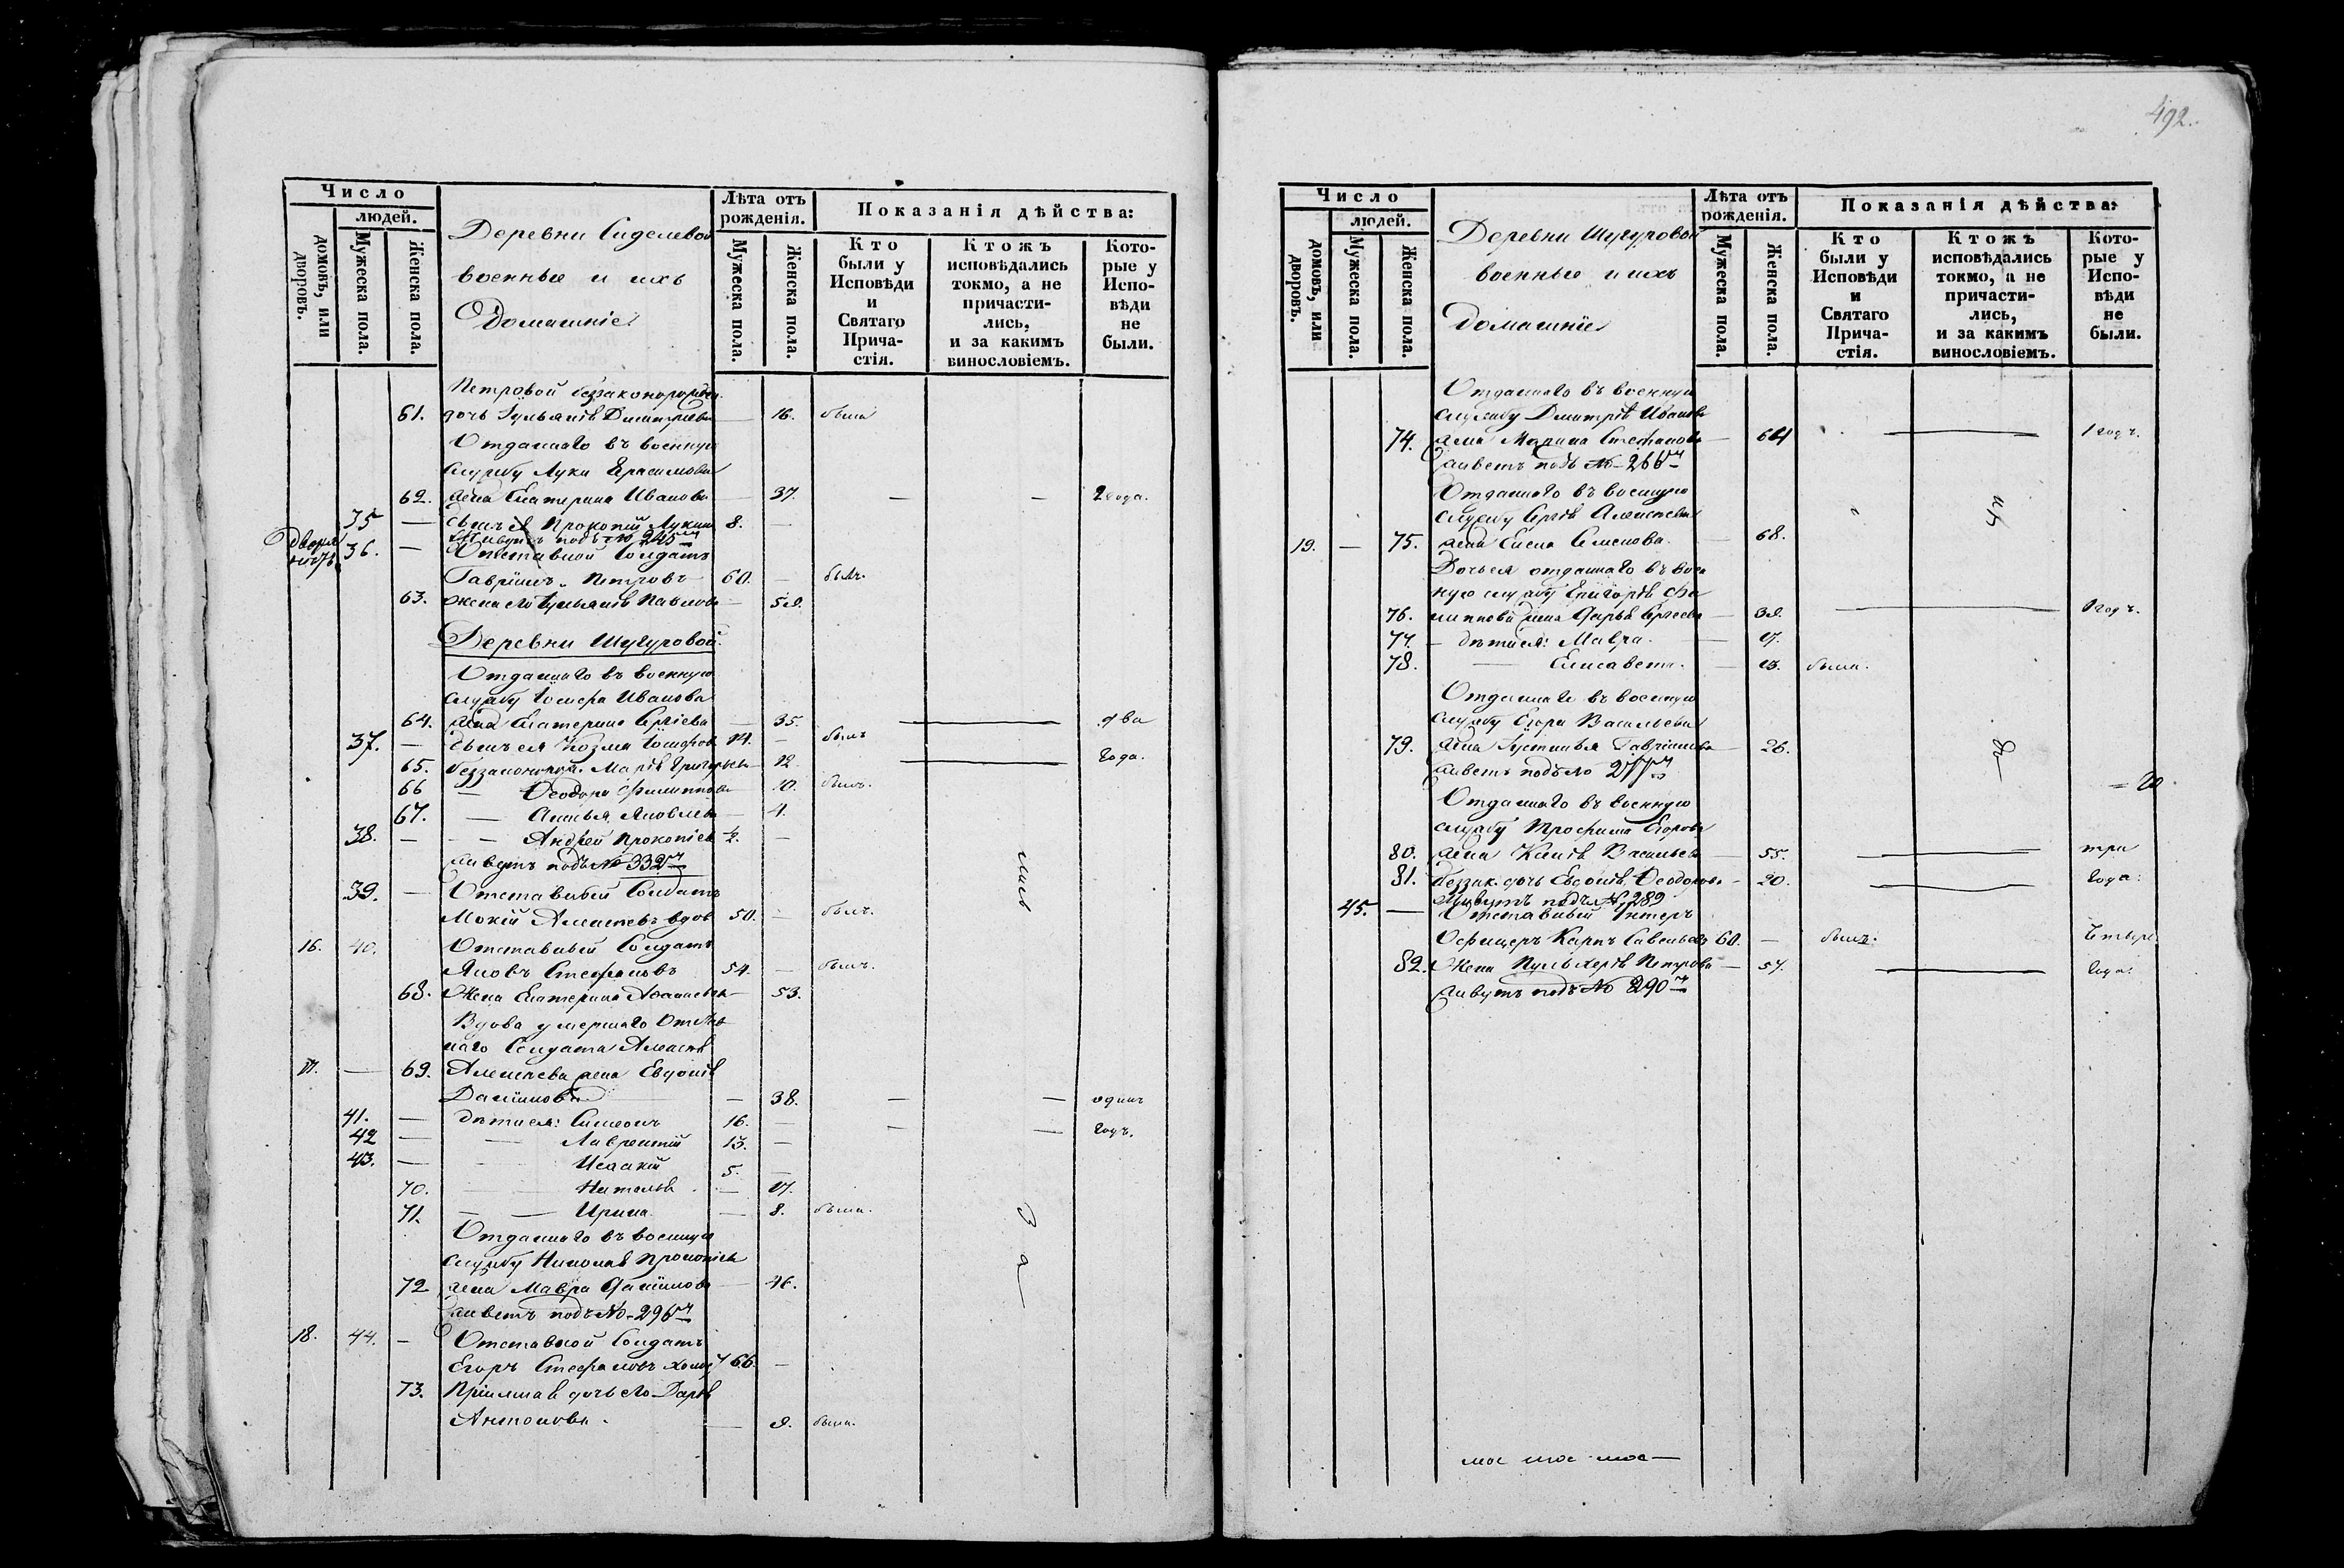 Число
людей.
домовъ, или дворовъ.
Мужеска пола.
Женска пола.
Деревни Сиделевой
военные и ихъ
Домашніе
Лѣта отъ рожденія.
Мужеска пола.
Женска пола.
Показанія дѣйства:
Кто были у Исповѣди и Святаго Прича-стія.
Ктожъ исповѣдались токмо, а не причасти-лись, и за какимъ винословіемъ.
Кото-рые у Испо-вѣди не были.
Петровой беззаконорожден.
61. дочь Іульянія Димитріева — 16. была
Отданнаго въ военную
службу Луки Герасимова
62. жена Екатерина Иванова — 37. — — 2 года.
35 — сынъ ея Прокопій Лукин 8. —
живутъ подъ № 245
36. — Отставной Солдатъ
Гавріилъ Петровъ 60. — былъ.
63. жена его Іульянія Павлова — 59.
Деревни Шугуровой.
Отданнаго въ военную
службу Іосифа Иванова
64. жена Екатерина Сергіева — 35. — два
37. — сынъ ея Козма Іосифов 14. — былъ
65. беззаконорож. Марія Григорьева — 12. — года.
66 — Ѳеодора Филиппова — 10. была.
67. — Анисья Яковлева — 4.
38. — — Андрей Прокопіев ½. —
живутъ подъ № 332
39. — Отставный Солдатъ
Мокій Алексѣевъ вдов 50. — былъ.
16. 40. Отставный Солдатъ
Яковъ Стефановъ 54. — былъ.
68. Жена Екатерина Аѳанасьева — 53.
Вдова умершаго Отстав
наго Солдата Алексѣя
17. — 69. Алексѣева жена Евдокія
Даніилова — 38. — — одинъ
41. — дѣти ея: Симеонъ 16. — — — годъ.
42 — — Лаврентій 13. —
43. — — Исаакій 5. —
70. — Наталья — 17.
71. — — Ирина — 8. была.
Отданнаго въ военную
службу Николая Прокопіева
72 жена Мавра Даніилова — 46.
живетъ подъ № 296
18. 44. — Отставной Солдатъ
Егоръ Стефановъ холос 66. —
73. Пріемная дочь его Дарія
Антонова. — 9. была.
За
492.
Число
людей.
домовъ, или дворовъ.
Мужеска пола.
Женска пола.
Деревни Шугуровой
военные и ихъ
домашніе
Лѣта отъ рожденія.
Мужеска пола.
Женска пола.
Показанія дѣйства:
Кто были у Исповѣди и Святаго Прича-стія.
Ктожъ исповѣдались токмо, а не причасти-лись, и за какимъ винословіемъ.
Кото-рые у Испо-вѣди не были.
Отданнаго въ военную
службу Димитрія Иванова
74. жена Марина Стефанова — 64 — 1 годъ.
живетъ подъ № 266
Отданнаго въ военную
службу Сергія Алексѣева
19. — 75. жена Елена Семенова. — 68.
Дочь ея отданнаго въ воен
ную службу Григорія Фи
76. липпова жена Дарья Сергеева — 39. — 1 годъ.
77. — дѣти ея: Мавра. — 17.
78. — Елисавета. — 13. была.
Отданнаго въ военную
службу Егора Васильева
79. жена Іустинья Гавріилова — 26.
живетъ подъ № 277
Отданнаго въ военную
службу Трофима Егорова
80. жена Ксенія Васильева — 55. — три
81. беззак. дочь Евдокія Ѳеодорова — 20. — года.
живутъ подъ № 289
45. — Отставный Унтеръ
Офицеръ Карпъ Савельевъ 60. — былъ. четыре
82. Жена Пульхерія Петрова — 57. — года.
живутъ подъ № 290